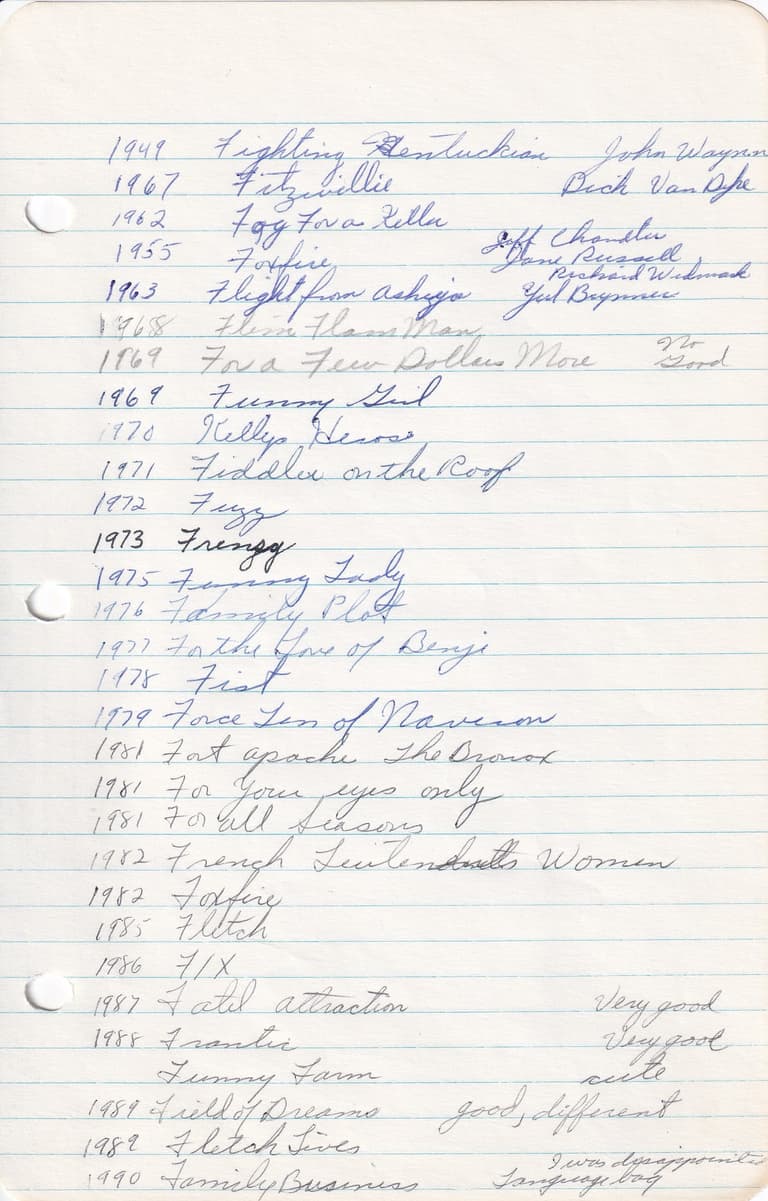 1949 Fighting Kentuckian John Waynn
1967 Fitzwillie Dick Van Dyke
1962 Fog For a Killer
1955 Foxfire Jeff Chandler
Jane Russell
Richard Widmark
1963 Flight from Ashiya Yul Brynner
1968 Flim Flam Man
1969 For a Few Dollars More No Good
1969 Funny Girl
1970 Kellys Heros
1971 Fiddler on the Roof
1972 Fuzz
1973 Frenzy
1975 Funny Lady
1976 Family Plot
1977 For the Love of Benji
1978 Fist
1979 Force Ten of Naverson
1981 Fort apache The Bronox
1981 For Your eyes only
1981 For all seasons
1982 French Women
1982 Foxfire
1985 Fletch
1986 F/X
1987 Fatel attraction Very good
1988 Frantic Very good
Funny Farm cute
1989 Field of Dreams good, different
1989 Fletch Lives
I was disappointed
1990 Family Business Language bag